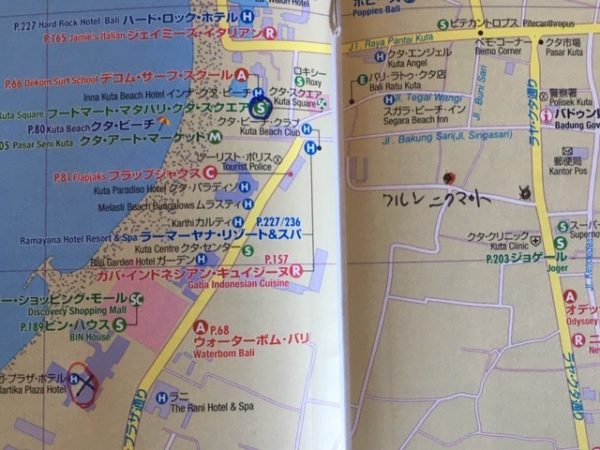 P.227 Hard Rock Hotel Bali ハード・ロック・ホテル H
P.165 Jamie's Italian ジェイミーズ・イタリアン R
Poppies Bali
ピテカントロプス Pitecanthropus
Jl. Raya Pantai Kuta
ベモ・コーナー
Bemo Corner
クタ市場
Pasar Kuta
H クタ・エンジェル
Kuta Angel
P.66 Dekom Surf School デコム・サーフ・スクール A
ロキシー
S Roxy
E バリ・ラトゥ・クタ店
Bali Ratu Kuta
Inna Kuta Beach Hotel インナ・クタ・ビーチ H
クタ・スクエア
Kuta Square SC
Kuta Square フードマート・マタハリ・クタ・スクエア S
Jl. Tegal Wangi
Jl. Buni Sari
H スガラ・ビーチ・イン
Segara Beach Inn
ラヤ・クタ通り
警察署
Polisek Kuta
i バドゥン
Badung Gover
P.80 Kuta Beach クタ・ビーチ
クタ・ビーチ・クラブ
Kuta Beach Club H
05 Pasar Seni Kuta クタ・アート・マーケット M
Jl. Bakung Sari(Jl. Singasari)
郵便局
Kantor Pos
P.81 Flapjaks フラップジャクス C
ツーリスト・ポリス
Tourist Police
Kuta Paradiso Hotel クタ・パラディソ H
Melasti Beach Bungalows ムラスティ H
Karthi カルティ H
P.227/236
Ramayana Hotel Resort & Spa ラーマーヤナ・リゾート&スパ
Kuta Centre クタ・センター S
クタ・クリニック
Kuta Clinic
S スーパー
Supernov
P.203 ジョゲール S
Joger
Garden Hotel ガーデン H
P.157
ガバ・インドネシアン・キュイジーヌ R
Gaba Indonesian Cuisine
ー・ショッピング・モール SC
Discovery Shopping Mall
P.189 ビン・ハウス S
BIN House
A P.68
ウォーターボム・バリ
Waterbom Bali
A オデッ
Odyssey
R ニ
ラヤ・クタ通り
プラザ・ホテル H
Kartika Plaza Hotel
H ラニ
The Rani Hotel & Spa